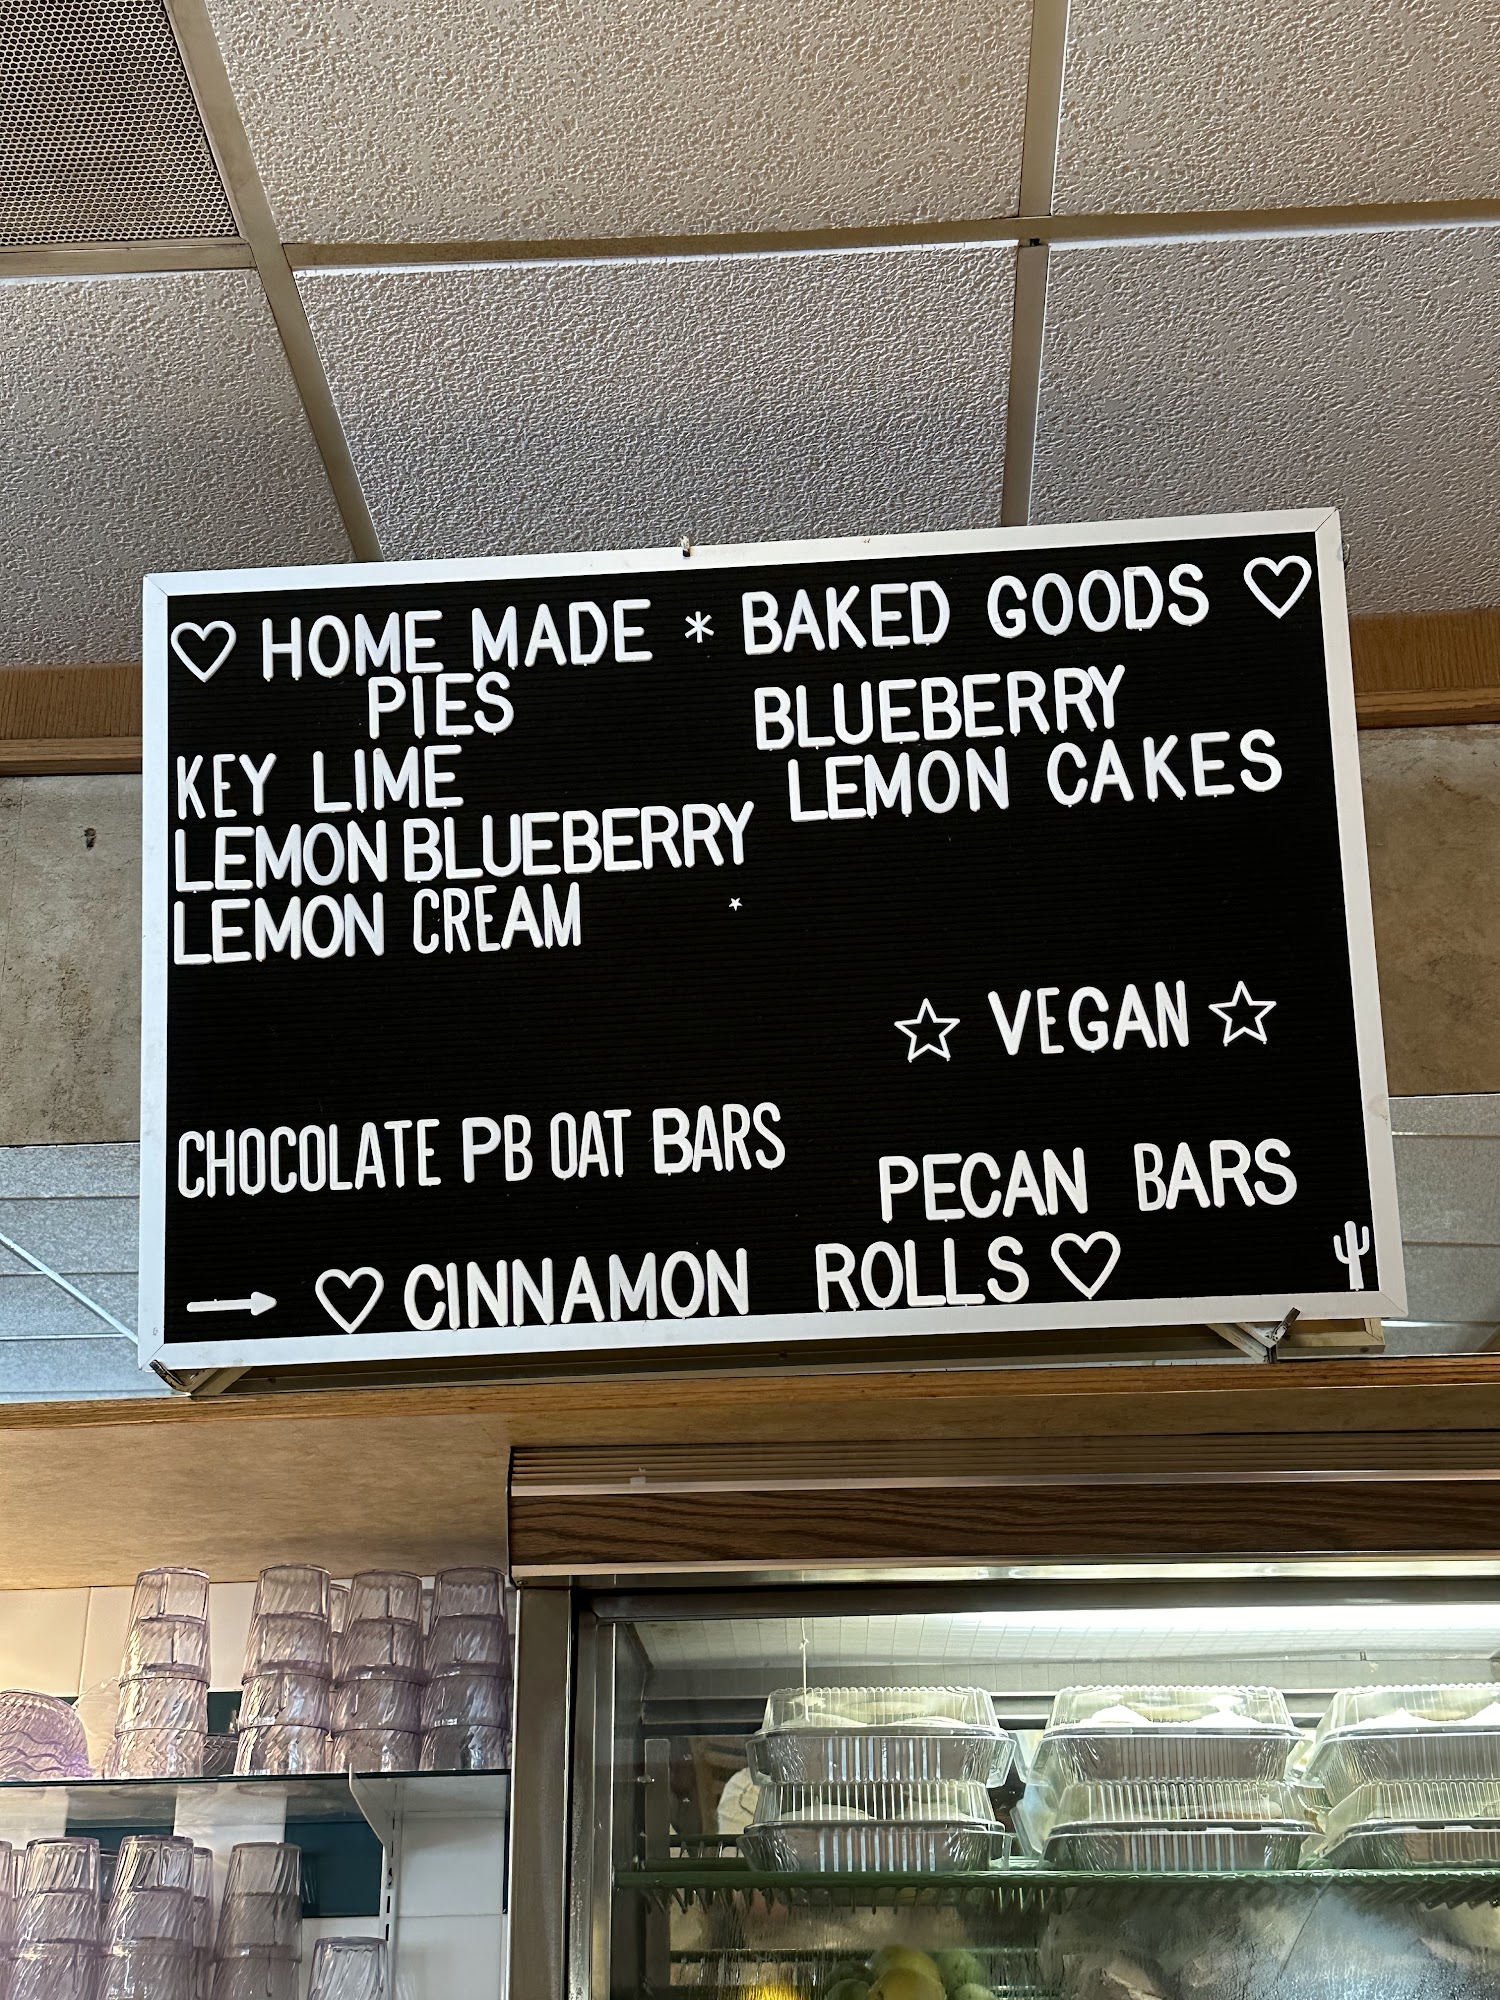 ♡ HOME MADE * BAKED GOODS ♡
PIES
KEY LIME
LEMON BLUEBERRY
LEMON CREAM
BLUEBERRY
LEMON CAKES
☆ VEGAN ☆
CHOCOLATE PB OAT BARS
PECAN BARS
→ ♡ CINNAMON ROLLS ♡